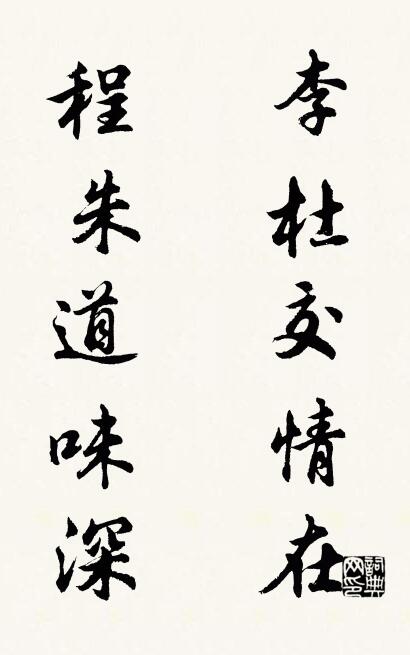 李杜交情在
程朱道味深
詞典網印